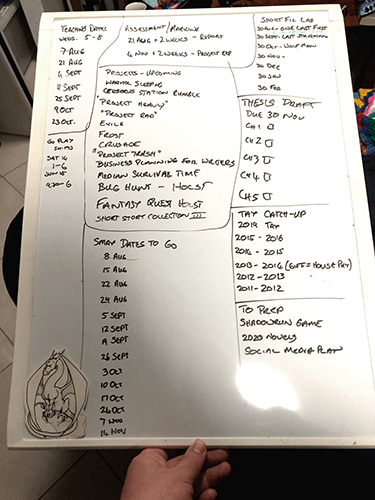 TEACHING DATES
WEDS. 5-8
7 AUG
21 AUG
4 SEPT
11 SEPT
25 SEPT
9 OCT
23 OCT.
GO PLAY
SHIFTS
SAT 14
1-6
SUN 15
4.30-6
ASSESSMENT/MARKING
21 AUG + 2 WEEKS - REPORT
4 NOV + 2 WEEKS - PROJECT
PROJECTS - UPCOMING
WARHOL SLEEPING
CERBERUS STATION RUMBLE
"PROJECT HEAVY"
"PROJECT RAD"
EXILE
FROST
CRUSADE
"PROJECT TRASH"
BUSINESS PLANNING FOR WRITERS
MEDIAN SURVIVAL TIME
BUG HUNT - HOLST
FANTASY QUEST HEIST
SHORT STORY COLLECTION III
SMAX DATES TO GO
8 AUG
15 AUG
22 AUG
29 AUG
5 SEPT
12 SEPT
19 SEPT
26 SEPT
3 OCT
10 OCT
17 OCT
24 OCT
7 NOV
14 NOV
SHORT FIC LAB
30 AUG - ONE LAST FIRST
30 SEPT -
30 OCT -
30 NOV -
30 DEC
30 JAN
30 FEB
THESIS DRAFT
DUE 30 NOV
CH 1
CH 2
CH 3
CH 4
CH 5
TAX CATCH-UP
2019 TAX
2015 - 2016
2014 - 2015
2013 - 2014 (GIFT = HOUSE PAY)
2012 - 2013
2011 - 2012
TO PREP
SHADOWRUN GAME
2020 NOVELS
SOCIAL MEDIA PLAN